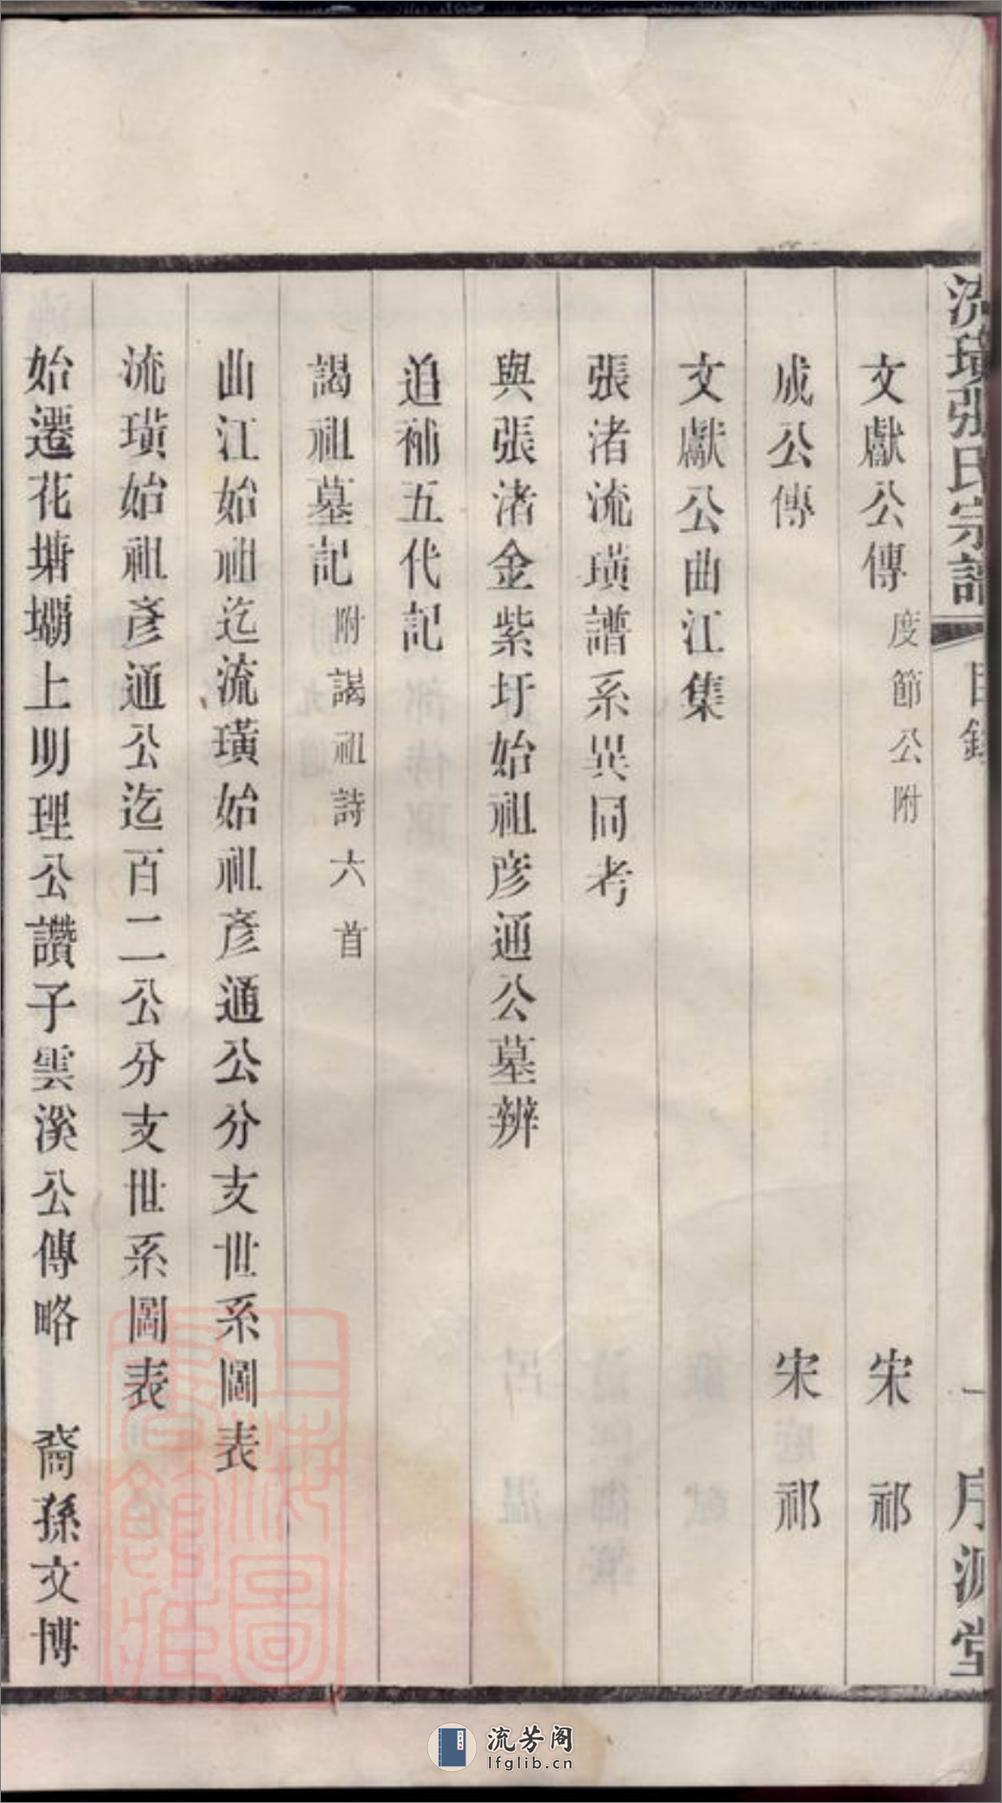 流璜張氏宗譜 目錄 一 序源堂
文獻公傳 度節公附 宋祁
成公傳 宋祁
文獻公曲江集
張渚流璜譜系異同考
與張渚金紫圩始祖彥通公墓辨
追補五代記
謁祖墓記 附謁祖詩六首
曲江始祖迄流璜始祖彥通公分支世系圖表
流璜始祖彥通公迄百二公分支世系圖表
始遷花塘壩上明理公讚子雲溪公傳略 裔孫文博
上海圖書館藏
流芳阁
lfglib.cn